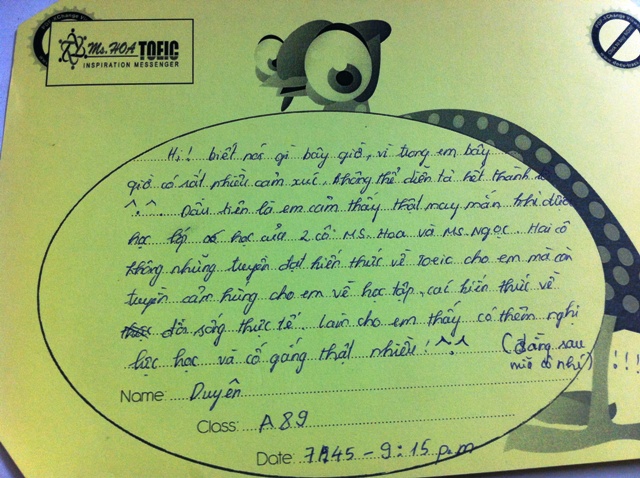 Ms. HOA TOEIC
INSPIRATION MESSENGER
Hi! biết nói gì bây giờ, vì trong em bây
giờ có rất nhiều cảm xúc. Không thể diễn tả hết thành
^.^. Đầu tiên là em cảm thấy thật may mắn khi được
học lớp học của 2 cô: MS. Hoa và Ms. Ngọc. Hai cô
không những truyền đạt kiến thức về Toeic cho em mà còn
truyền cảm hứng cho em về học tập, các kiến thức về
đời sống thực tế. Làm cho em thấy có thêm nghị
lực học và cố gắng thật nhiều! ^.^ (đằng sau
nữa cô nhé) !!!
Name: Duyên
Class: A89
Date: - 9:15 p.m